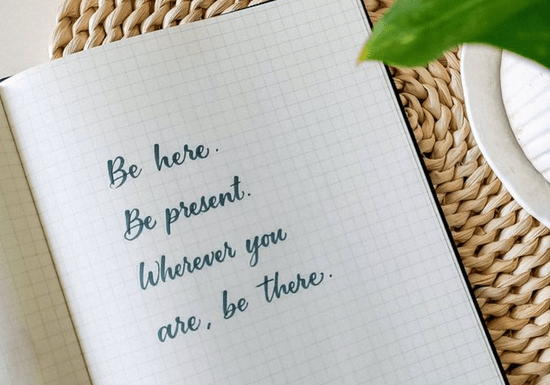 Be here.
Be present.
Wherever you
are, be there.